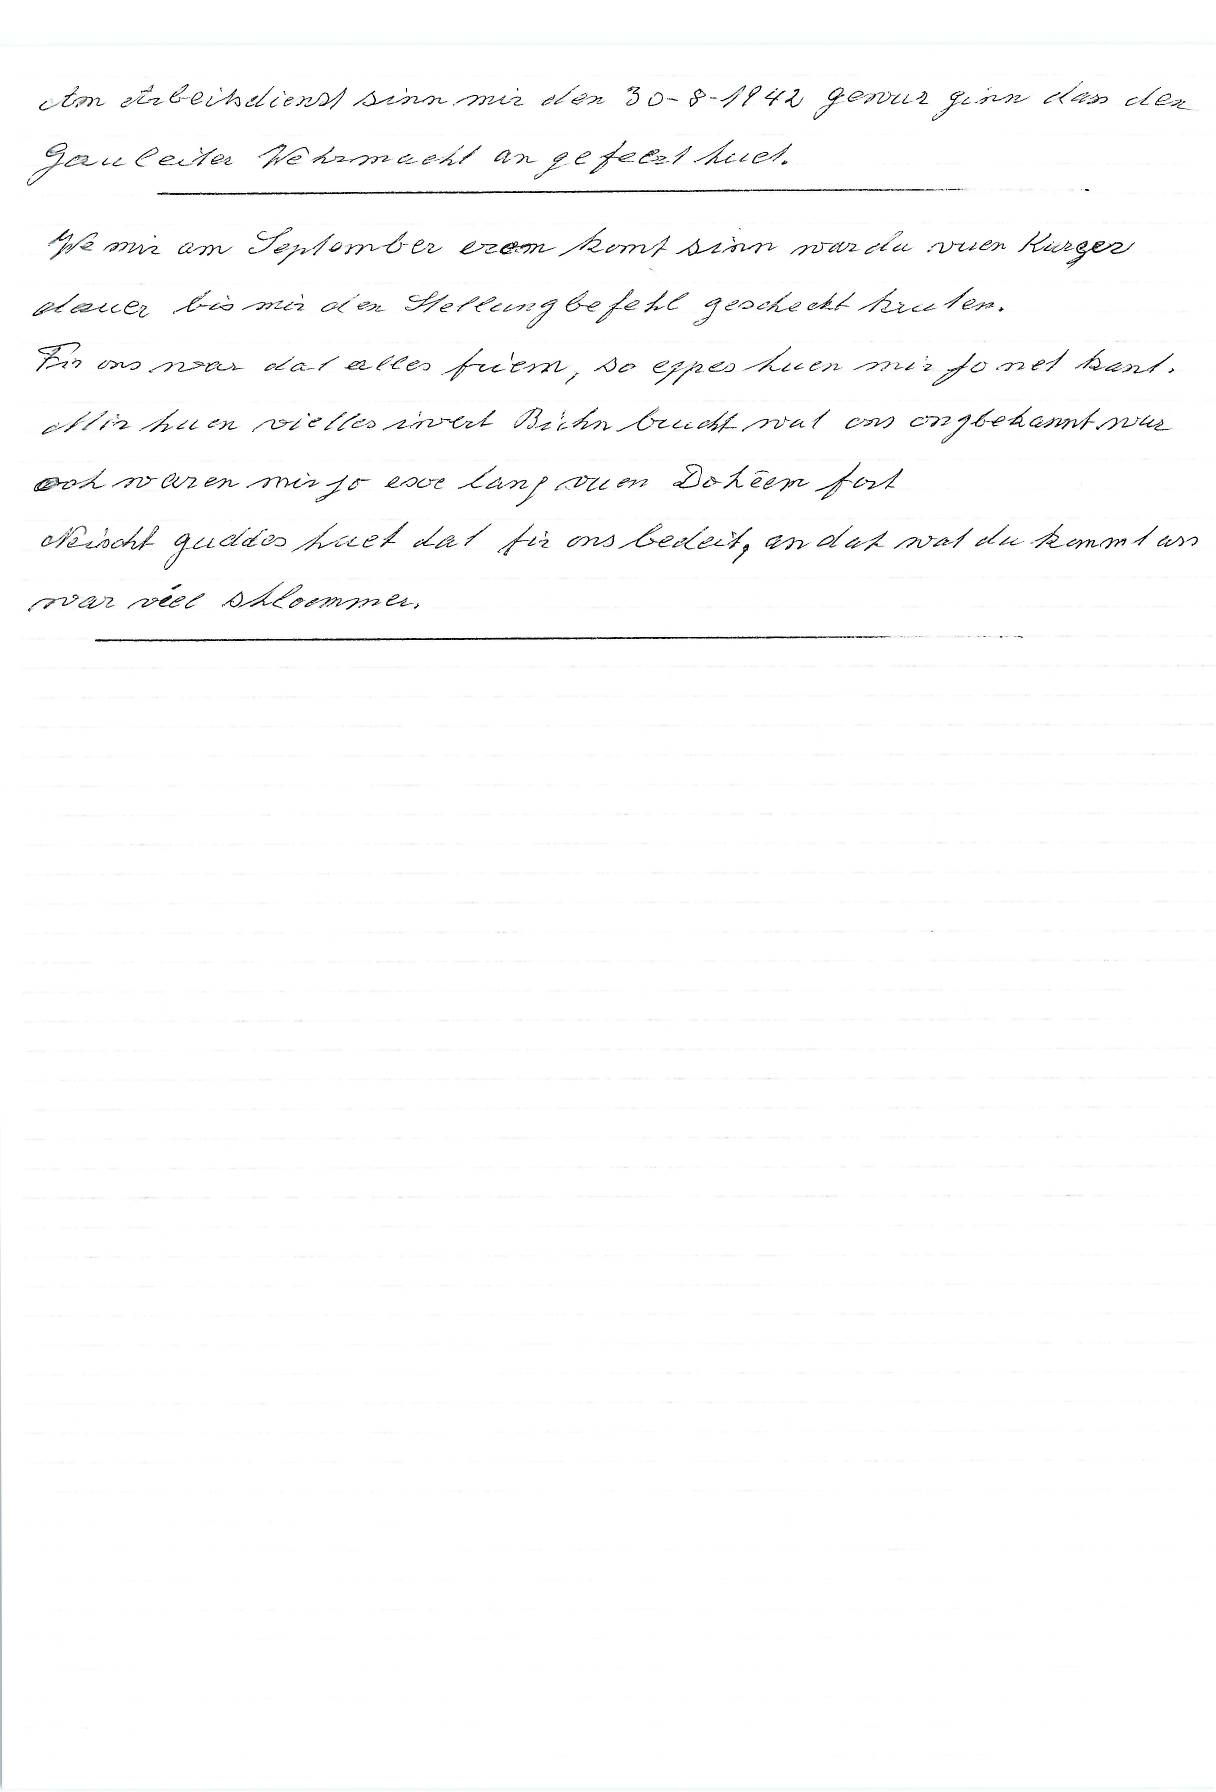 Am Arbeitsdienst sinn mir den 30-8-1942 gewur ginn dass den
Gauleiter Wehrmacht an gefeert huet.
We mir am September erem komt sinn war da vuen Kurzer
dauer bis mir den Stellungbefehl gescheckt kruten.
Fir ons war dat alles friem, so eppes huen mir jo net kant.
Mir huen vielles iwert Bichn brucht wat ons ongbekannt war
och waren mir jo esoe lang vuen Doheem fort
Neischt guddes huet dat fir ons bedeit, an dat wat du kommt ass
war viel shloemmer.